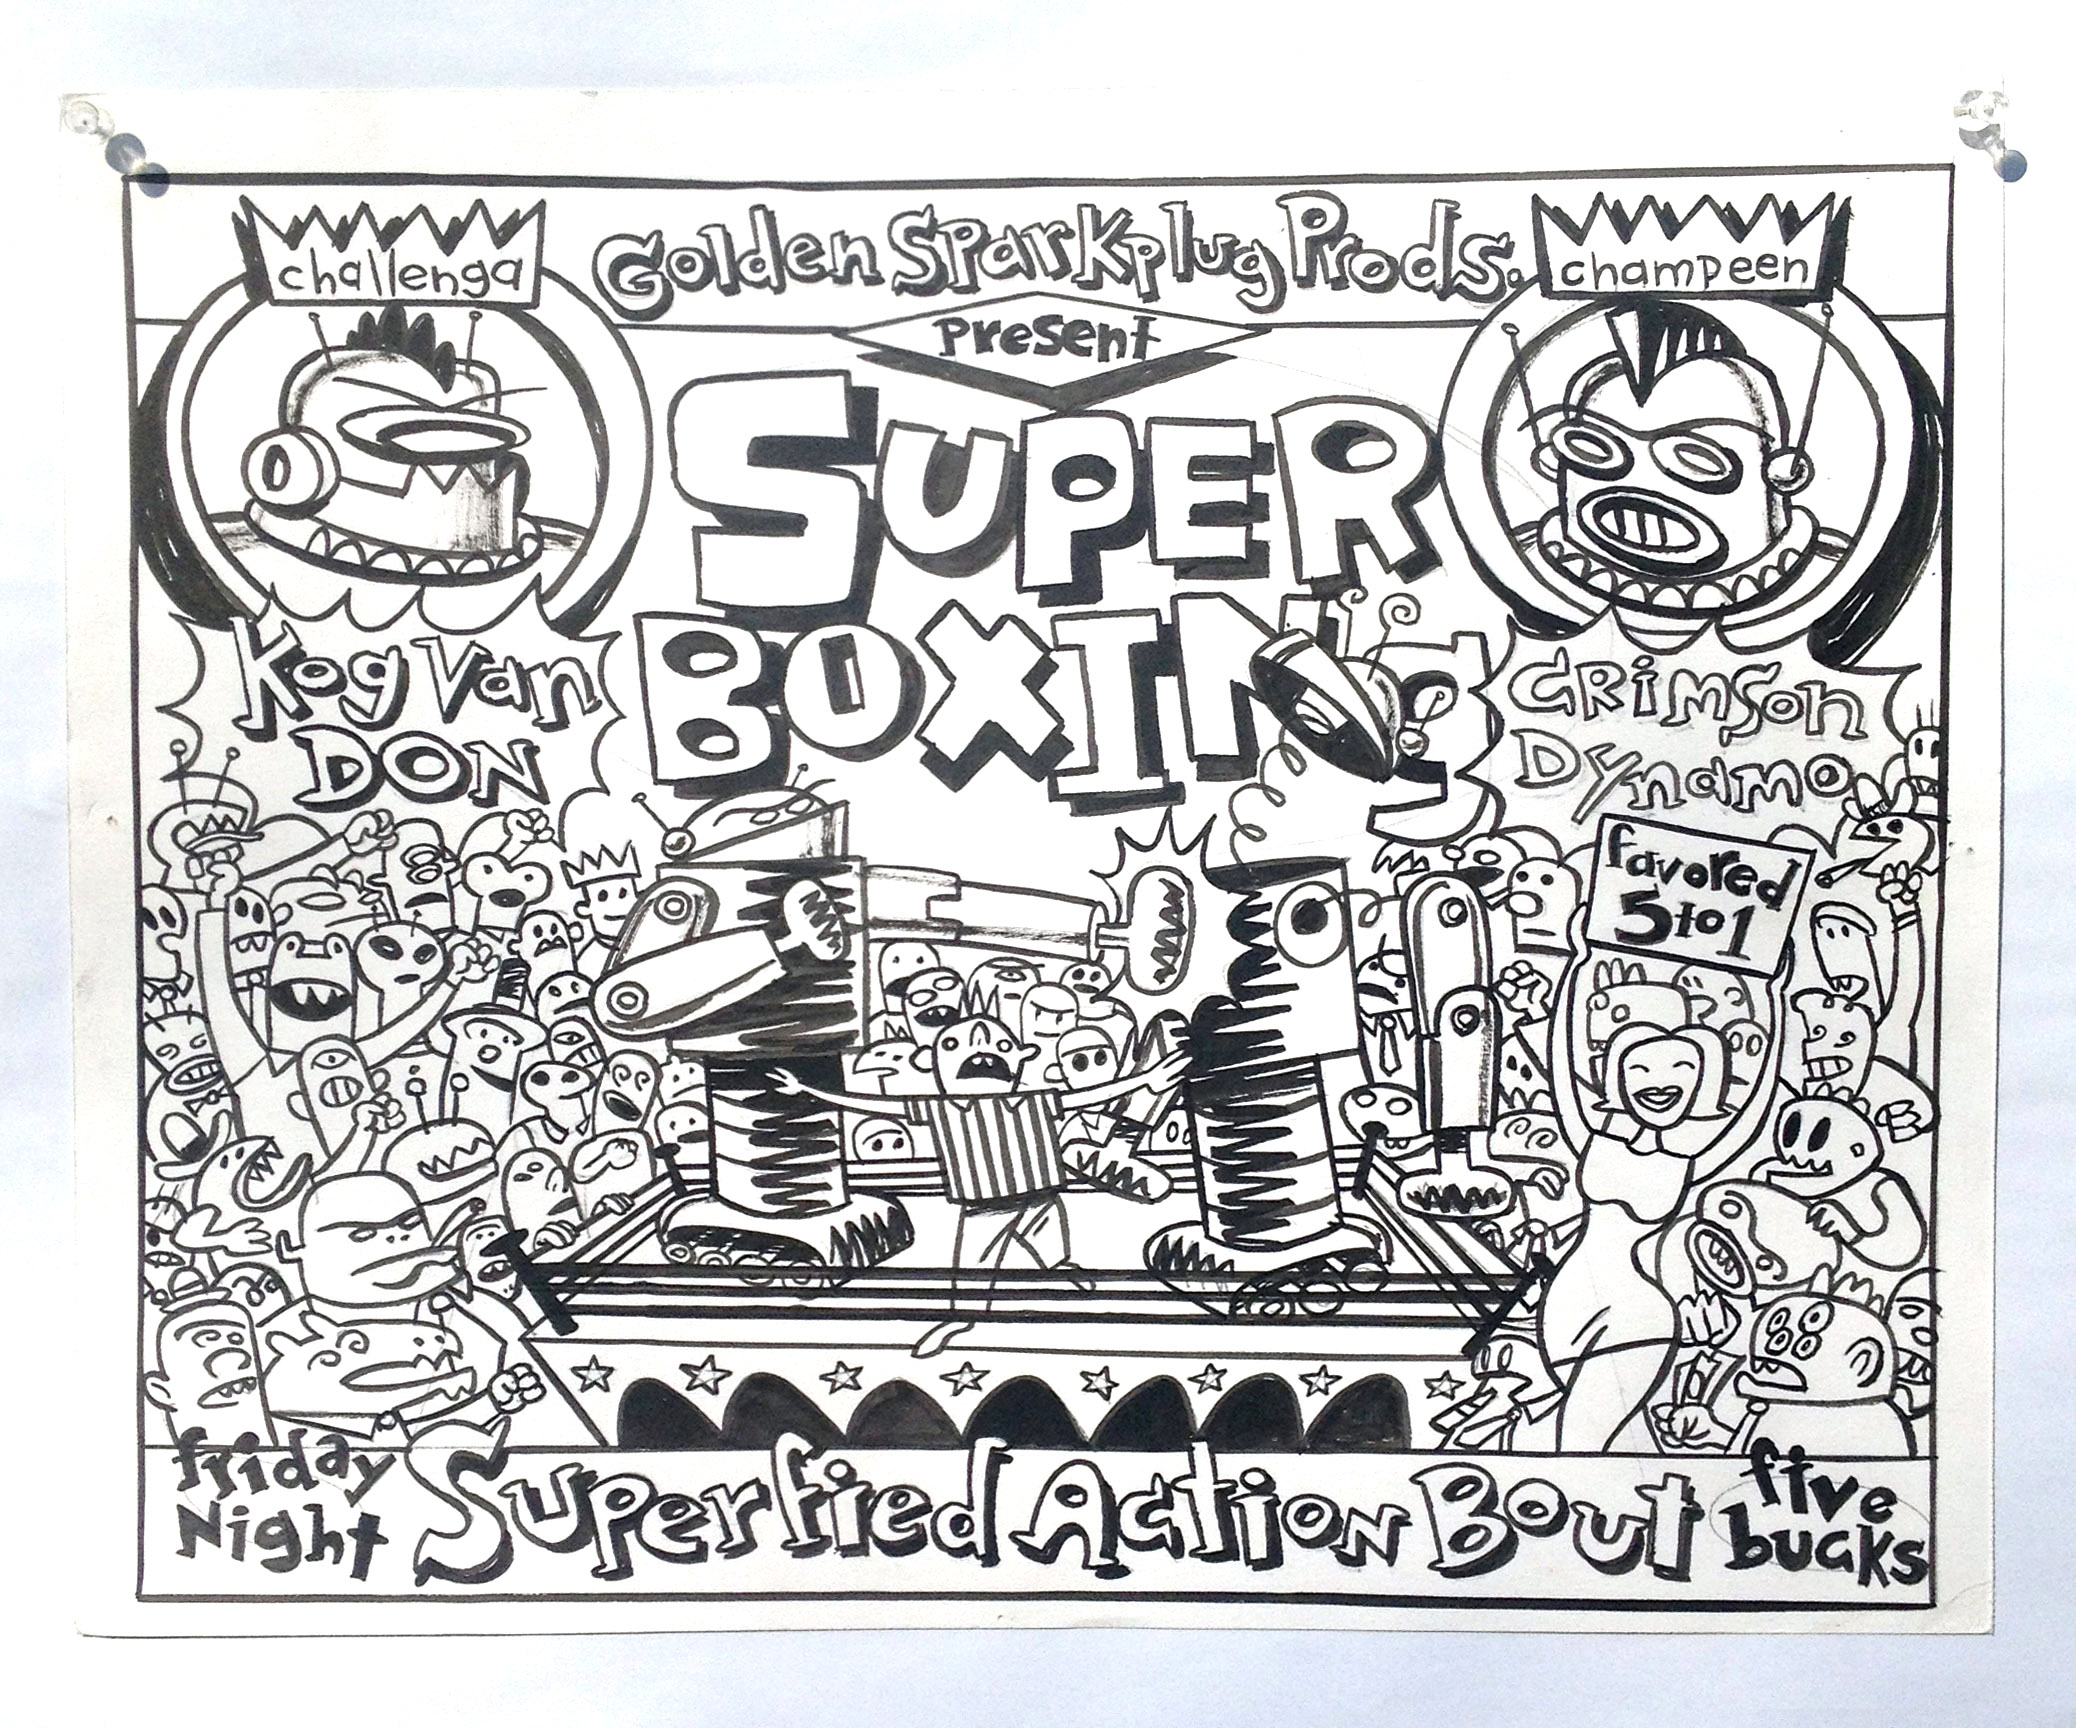 challenga
Golden Sparkplug Prods.
champeen
Present
SUPER
BOXING
Kog Van
DON
CRIMSON
DYNAMO
favored
5 to 1
friday
Night
Superfied Action Bout
five
bucks